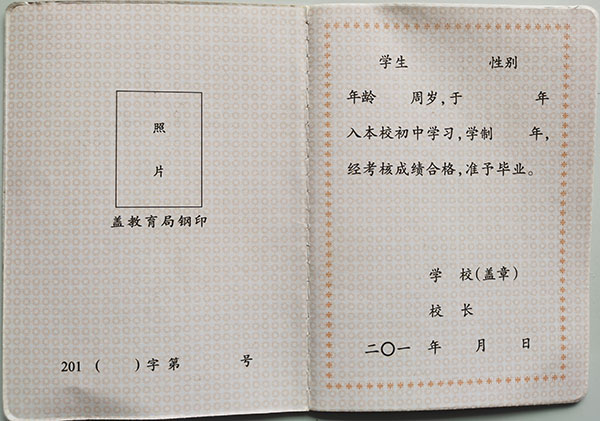 照
片
盖教育局钢印
201 ( )字第 号
学生 性别
年龄 周岁,于 年
入本校初中学习,学制 年,
经考核成绩合格,准予毕业。
学 校(盖章)
校 长
二〇一 年 月 日